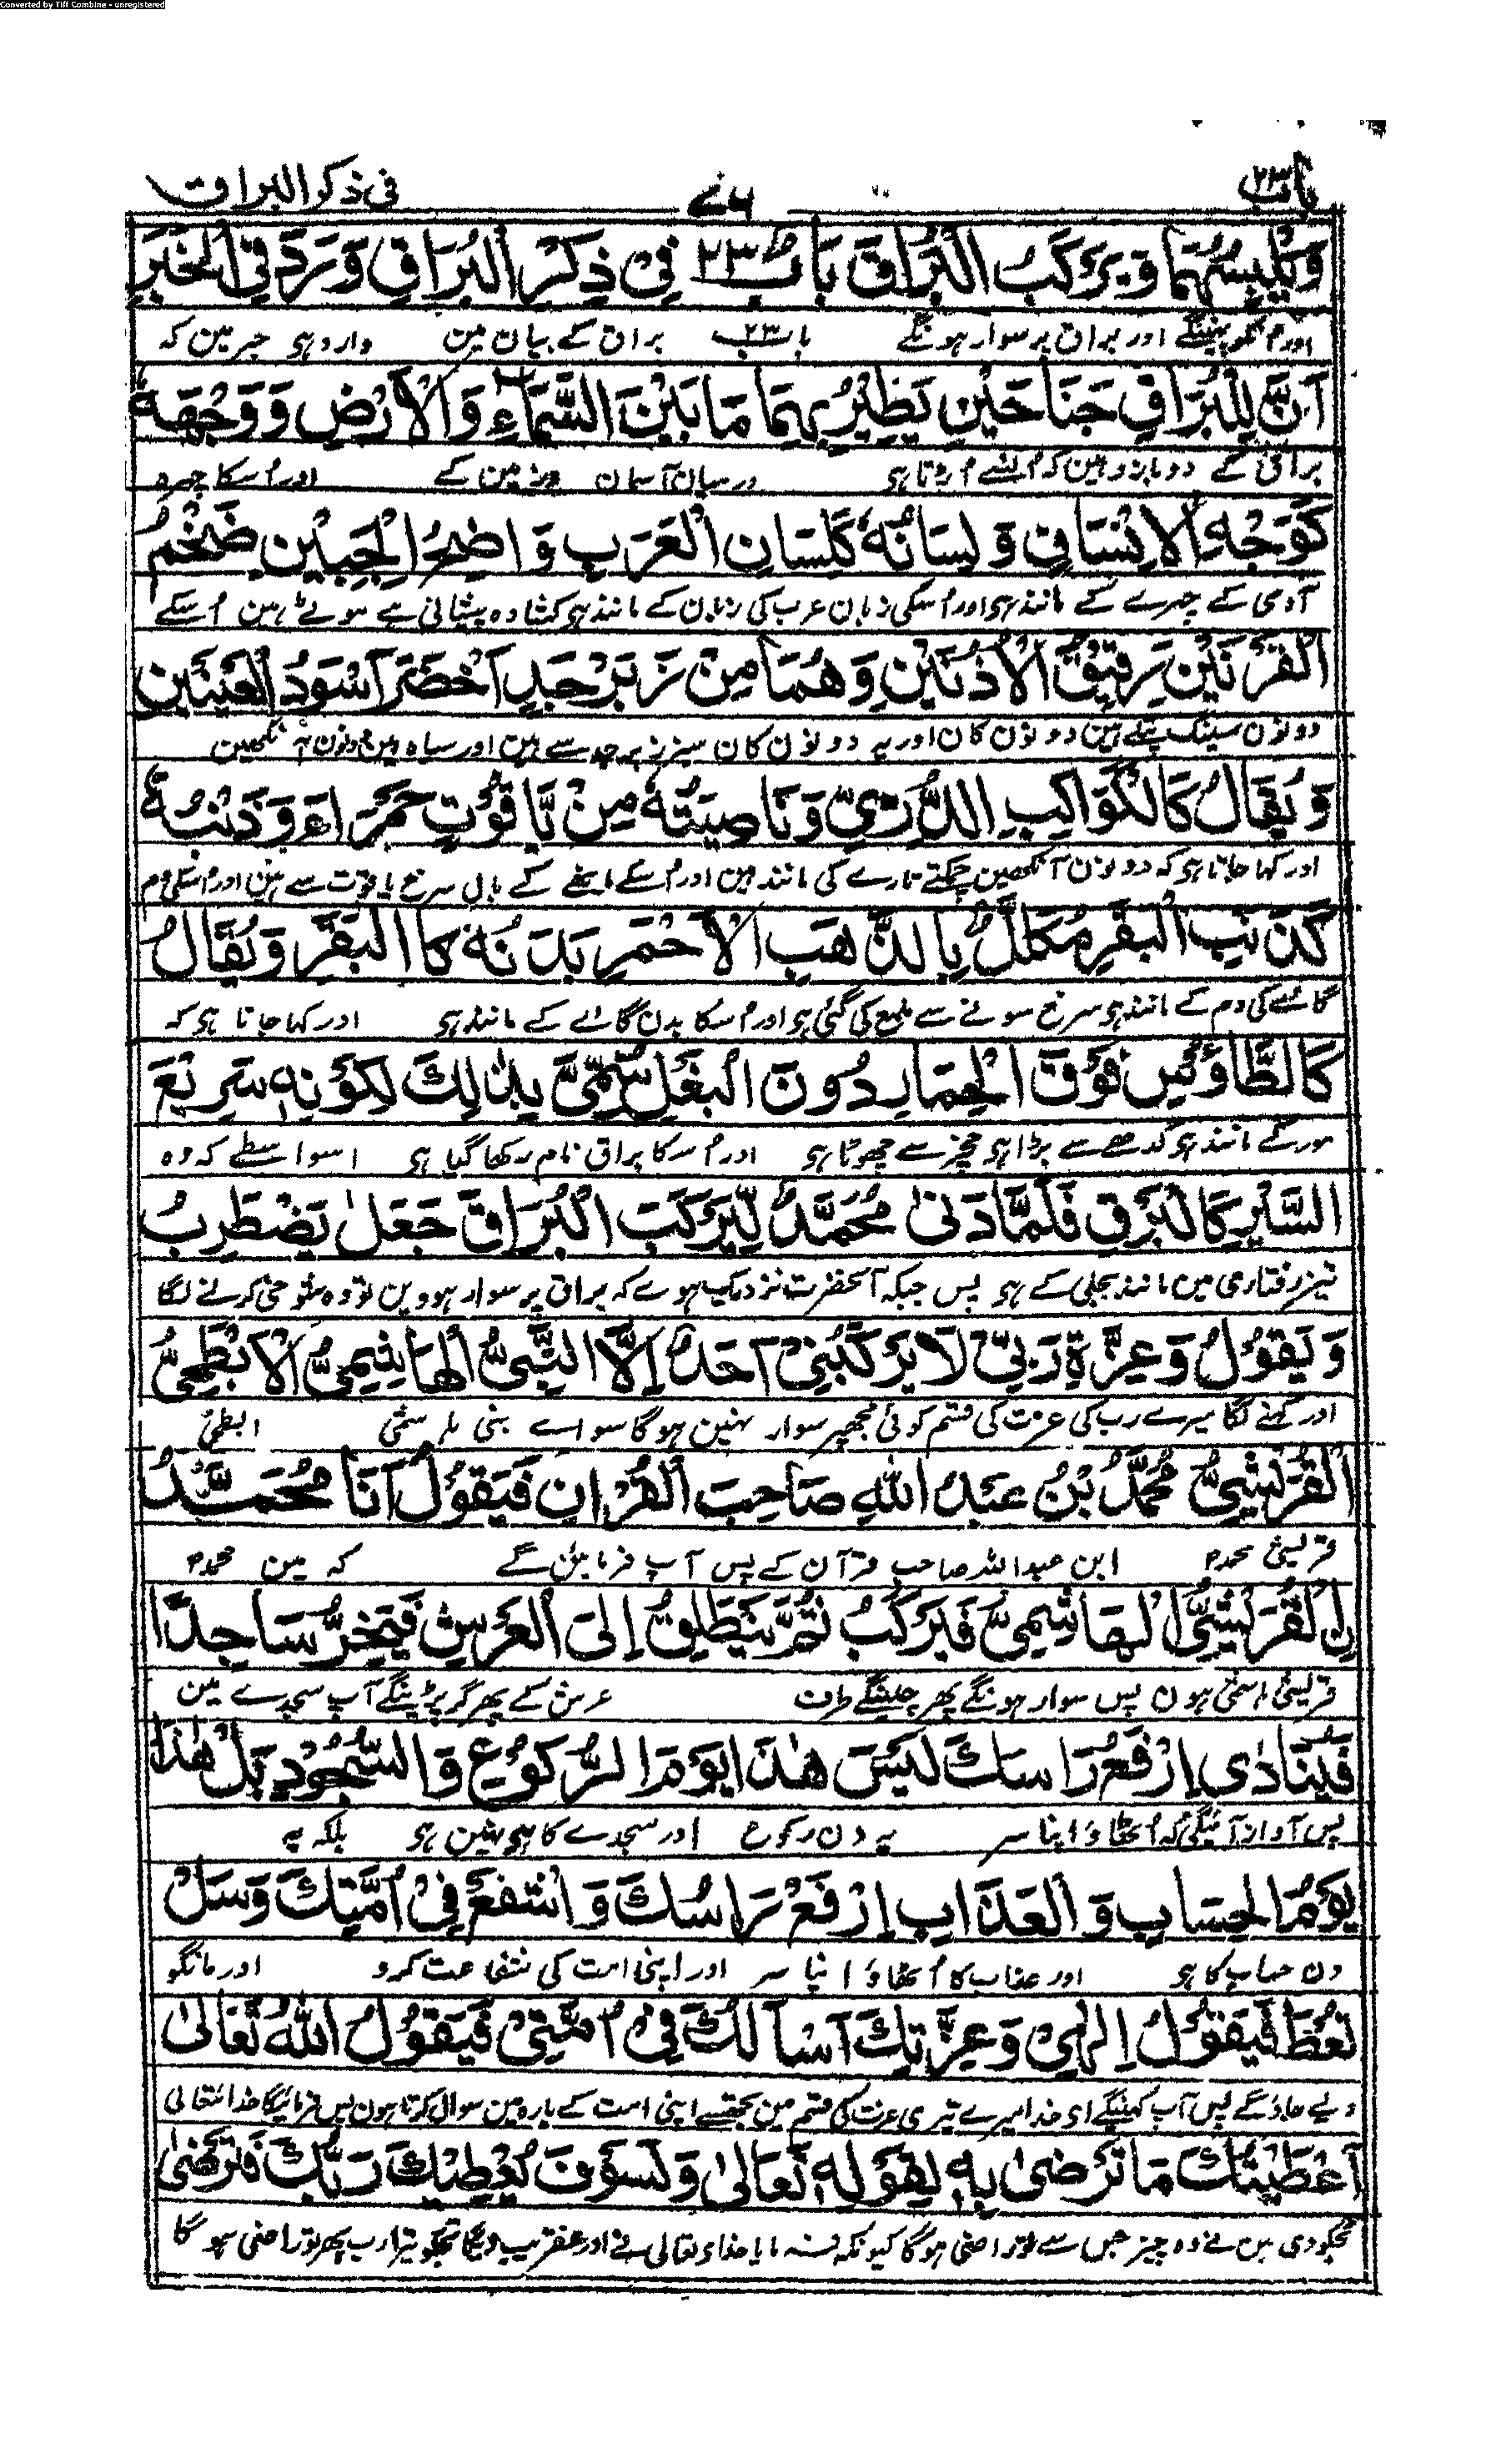 Converted by Tiff Combine - unregistered
باب ٢٣
٧٦
فی ذکر البراق
وَيَلْبِسُهُمَا وَيَرْكَبُ الْبُرَاقَ بَابُ ٢٣ فِيْ ذِكْرِ الْبُرَاقِ وَرَدَ فِي الْخَبَرِ
اور انکو پہنینگے اور براق پر سوار ہونگے باب ٢٣ براق کے بیان مین وارد ہی خبر مین کہ
اَنَّ لِلْبُرَاقِ جَنَاحَيْنِ يَطِيْرُ بِهِمَا مَا بَيْنَ السَّمَاءِ وَالْاَرْضِ وَوَجْهُهٗ
براق کے دو بازو ہین کہ اُنسے اُڑتا ہی درمیان آسمان وزمین کے اور اُسکا چہرہ
كَوَجْهِ الْاِنْسَانِ وَلِسَانُهٗ كَلِسَانِ الْعَرَبِ وَاضِحُ الْجَبِيْنِ ضَخْمُ
آدمی کے چہرے کے مانند ہی اور اُسکی زبان عرب کی زبان کے مانند ہی کشادہ پیشانی ہے موٹے ہین اُسکے
الْقَرْنَيْنِ رَقِيْقُ الْاُذُنَيْنِ وَهُمَا مِنْ زَبَرْجَدٍ اَخْضَرَ اَسْوَدُ الْعَيْنَيْنِ
دونون سینگ پتلے ہین دونون کان اور یہ دونون کان سبز زبرجد سے ہین اور سیاہ ہین دونون آنکھین
وَيُقَالُ كَالْكَوَاكِبِ الدُّرِّيِّ وَنَاصِيَتُهٗ مِنْ يَّاقُوْتٍ حَمْرَاءَ وَذَنَبُهٗ
اور کہا جاتا ہی کہ دونون آنکھین چمکتے تارے کی مانند ہین اور اُسکے ماتھے کے بال سرخ یاقوت سے ہین اور اُسکی دم
كَذَنَبِ الْبَقَرِ مُكَلَّلٌ بِالذَّهَبِ الْاَحْمَرِ بَدَنُهٗ كَا الْبَقَرِ وَيُقَالُ
گائے کی دم کے مانند ہی سرخ سونے سے ملمع کی گئی ہی اور اُسکا بدن گائے کے مانند ہی اور کہا جاتا ہی کہ
كَالطَّاوُسِ فَوْقَ الْحِمَارِ دُوْنَ الْبَغْلِ سُمِّيَ بِذٰلِكَ لِكَوْنِهٖ سَرِيْعَ
مور کے مانند ہی گدھے سے بڑا ہی خچر سے چھوٹا ہی اور اُسکا براق نام رکھا گیا ہی اسواسطے کہ وہ
السَّيْرِ كَالْبَرْقِ فَلَمَّا دَنٰى مُحَمَّدٌ لِيَرْكَبَ الْبُرَاقَ جَعَلَ يَضْطَرِبُ
تیز رفتاری مین مانند بجلی کے ہی پس جبکہ آنحضرت نزدیک ہوے کہ براق پر سوار ہووین تو وہ شوخی کرنے لگا
وَيَقُوْلُ وَعِزَّةِ رَبِّيْ لَا يَرْكَبُنِيْ اَحَدٌ اِلَّا النَّبِيُّ الْهَاشِمِيُّ الْاَبْطَحِيُّ
اور کہنے لگا میرے رب کی عزت کی قسم کوئی مجھپر سوار نہین ہوگا سواے نبی ہاشمی ابطحی
الْقُرَيْشِيُّ مُحَمَّدُ بْنُ عَبْدِ اللّٰهِ صَاحِبَ الْقُرْاٰنِ فَيَقُوْلُ اَنَا مُحَمَّدُ
قریشی محمد ابن عبداللہ صاحب قرآن کے پس آپ فرمائن گے کہ مین محمد
نِ الْقُرَيْشِيُّ الْهَاشِمِيُّ فَيَرْكَبُ ثُمَّ يَنْطَلِقُ اِلَى الْعَرْشِ فَيَخِرُّ سَاجِدًا
قریشی ہاشمی ہون پس سوار ہونگے پھر چلینگے طرف عرش کے پھر گر پڑینگے آپ سجدے مین
فَيُنَادٰى اِرْفَعْ رَاسَكَ لَيْسَ هٰذَا يَوْمَ الرُّكُوْعِ وَالسُّجُوْدِ بَلْ هٰذَا
پس آواز آئیگی کہ اُٹھاؤ اپنا سر یہ دن رکوع اور سجدے کا ہی نہین ہی بلکہ یہ
يَوْمُ الْحِسَابِ وَالْعَذَابِ اِرْفَعْ رَاسَكَ وَاشْفَعْ فِيْ اُمَّتِكَ وَسَلْ
دن حساب کا ہی اور عذاب کا اُٹھاؤ اپنا سر اور اپنی امت کی شفاعت کرو اور مانگو
تُعْطَ فَيَقُوْلُ اِلٰهِيْ وَعِزَّتِكَ اَسْاَلُكَ فِيْ اُمَّتِيْ فَيَقُوْلُ اللّٰهُ تَعَالٰى
دیے جاؤگے پس آپ کہینگے ای خدا میرے تیری عزت کی قسم مین تجھسے اپنی امت کے بارہ مین سوال کرتا ہون پس فرمائیگا خدا تعالی
اَعْطَيْتُكَ مَا تَرْضٰى بِهٖ لِقَوْلِهٖ تَعَالٰى وَلَسَوْفَ يُعْطِيْكَ رَبُّكَ فَتَرْضٰى
تجکو دی مین نے وہ چیز جس سے تو راضی ہوگا کیونکہ فرمایا خداے تعالی نے اور عنقریب دیگا تجکو تیرا رب پھر تو راضی ہوگا